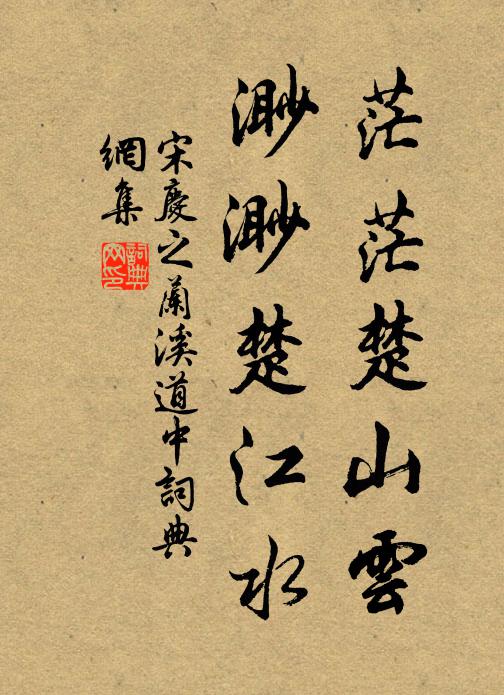 茫茫楚山雲
渺渺楚江水
宋慶之蘭溪道中詞典
網集
詞典
网印